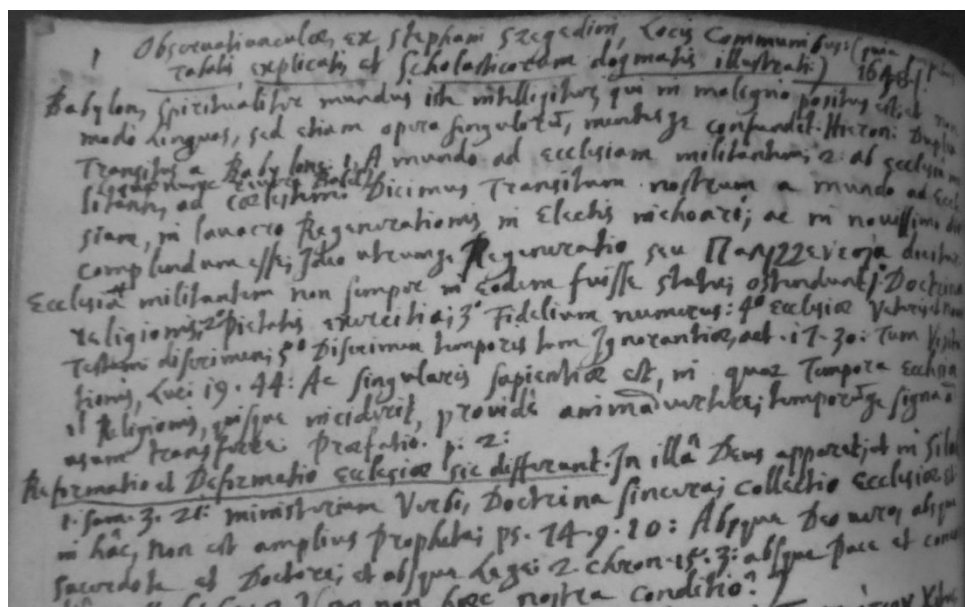 1 Observatiunculæ, ex Stephani Szegedini, Locis Communibus: (quia
Tabulis explicatis et Scholasticorum dogmatis illustrati) 1648
Babylon, spiritualiter mundus iste intelligitur, qui in maligno positus est, et non
modo Linguas, sed etiam opera singulorũ, mentesqe confundit. Hieron: Duplex
Transitus a Babylone: 1. A mundo ad ecclesiam militantem; 2. ab ecclesia mi
litante, ad cœlestem. Dicimus Transitum nostrum a mundo ad Eccle
siam, in lavacro Regenerationis in Electis inchoari; ac in novissimo die
complendum esse; Ideo utrumqe Regeneratio seu dicitur
Ecclesiã militantem non semper in eodem fuisse statu, ostendunt 1º Doctrina
religionis; 2º Pietatis exercitia; 3º Fidelium numerus: 4º Ecclesiæ Veteris et Novi
Testam: discrimen; 5º Discrimen temporis tum Ignorantiæ, act. 17. 30: Tum Visita
tionis, Luc: 19. 44: Ac singularis sapientiæ est, in quæ Tempora Ecclesiæ
et Religionis, quisque inciderit, providè animadvertere; temporũqe signa ad
usum transferre. Præfatio. p. 2:
Reformatio et Deformatio Ecclesiæ sic differunt. In illâ Deus apparet, ut in Silo
1. Sam. 3. 21: ministerium Verbi, Doctrina sincera; collectio Ecclesiæ est
in hâc, non est amplius Propheta; ps. 74. 9. 10: Absque Deo vero, absque
sacerdote et Doctore; et absque Lege: 2. chron. 15. 3: absque Pace et
non hæc nostra conditio?